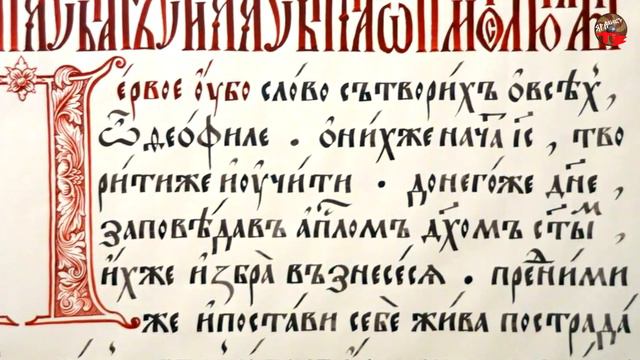 Пе́рвое оу҆́бо сло́во сътвори́хъ ѻ҆всѣ́хъ,
ѽ де́ѻфиле . ѻ҆ни́хже нача́тъ і҆с҃, тво
ри́тиже и҆оучи́ти . донего́же дн҃е,
заповѣ́давъ а҆п҃ломъ дх҃омъ ст҃ы́м,
и҆́хже и҆збра̀ възнесе́сѧ . пре́ни́ми
же и҆поста́ви себѐ жи́ва пострада́